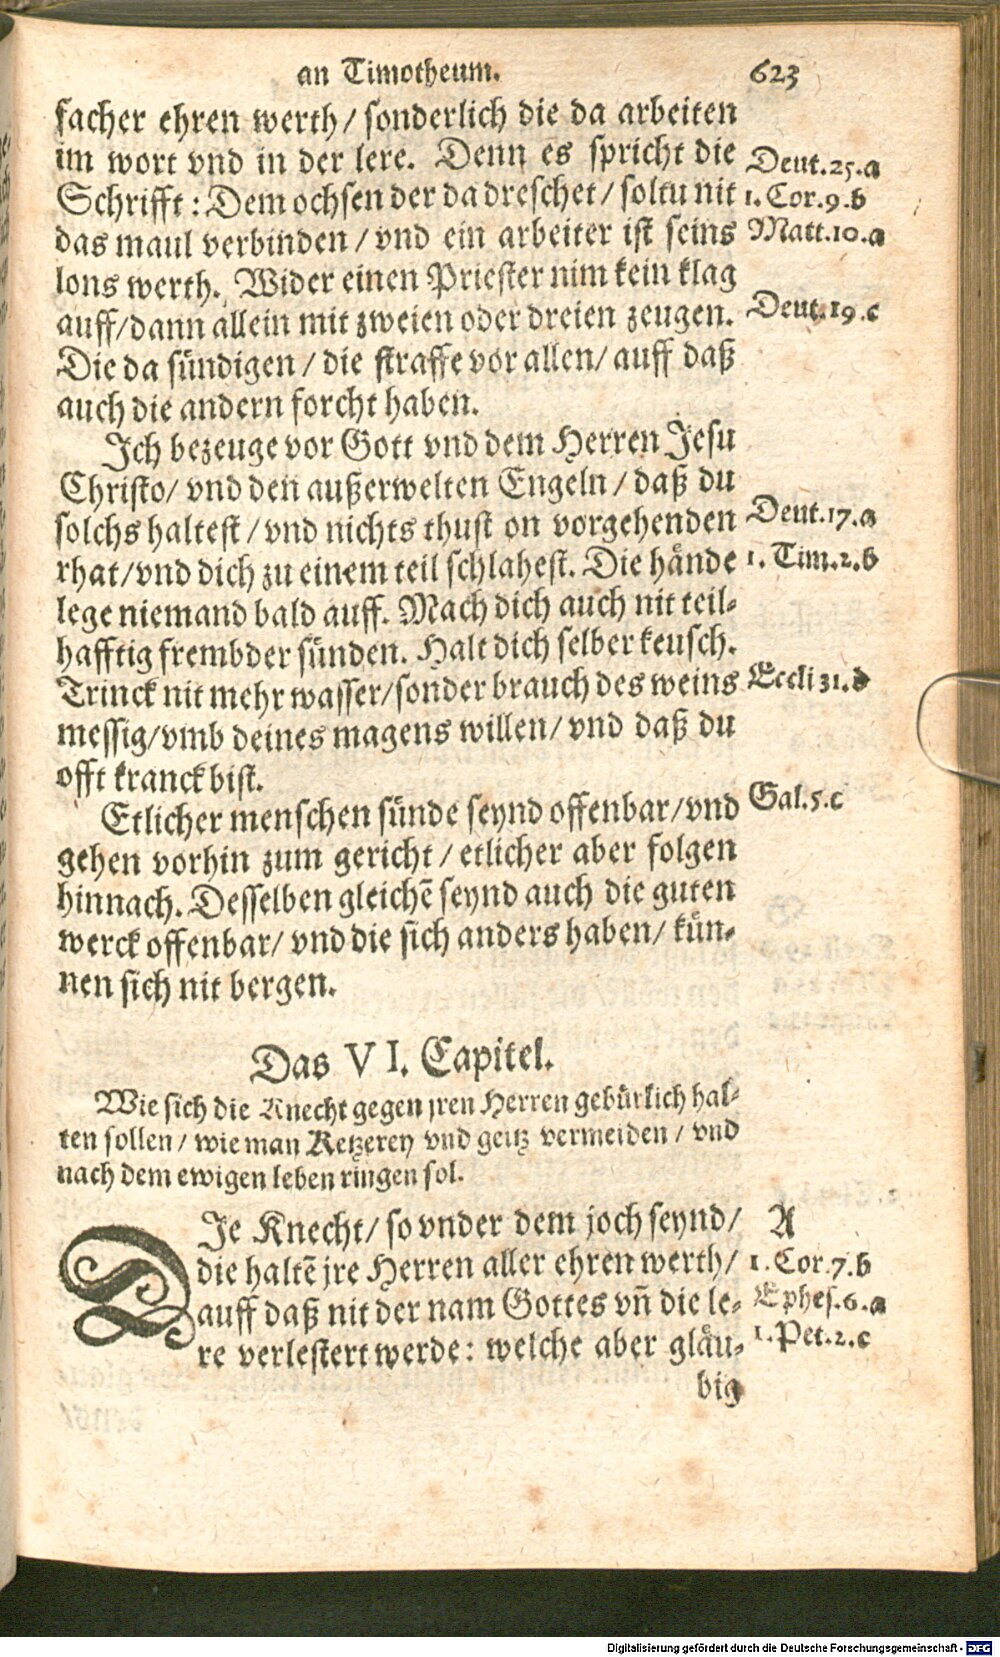 an Timotheum. 623
facher ehren werth / sonderlich die da arbeiten
im wort vnd in der lere. Denn es spricht die
Schrifft : Dem ochsen der da dreschet / soltu nit
das maul verbinden / vnd ein arbeiter ist seins
lons werth. Wider einen Priester nim kein klag
auff/dann allein mit zweien oder dreien zeugen.
Die da sündigen / die straffe vor allen/ auff daß
auch die andern forcht haben.
Ich bezeuge vor Gott vnd dem Herren Jesu
Christo/ vnd den außerwelten Engeln / daß du
solchs haltest / vnd nichts thust on vorgehenden
rhat/vnd dich zu einem teil schlahest. Die hände
lege niemand bald auff. Mach dich auch nit teil-
hafftig frembder sünden. Halt dich selber keusch.
Trinck nit mehr wasser/sonder brauch des weins
messig/vmb deines magens willen/ vnd daß du
offt kranck bist.
Etlicher menschen sünde seynd offenbar/vnd
gehen vorhin zum gericht / etlicher aber folgen
hinnach. Desselben gleichẽ seynd auch die guten
werck offenbar/ vnd die sich anders haben/ kün-
nen sich nit bergen.
Deut.25.a
1. Cor.9.b
Matt.10.a
Deut.19.c
Deut.17.a
1. Tim.2.b
Eccli 31.d
Gal.5.c
Das VI. Capitel.
Wie sich die Knecht gegen jren Herren gebürlich hal-
ten sollen / wie man Ketzerey vnd geitz vermeiden / vnd
nach dem ewigen leben ringen sol.
DJe Knecht/ so vnder dem joch seynd/
die haltẽ jre Herren aller ehren werth/
auff daß nit der nam Gottes vñ die le-
re verlestert werde: welche aber gläu-
big
A
1. Cor.7.b
Ephes.6.a
1. Pet.2.c
Digitalisierung gefördert durch die Deutsche Forschungsgemeinschaft - DFG